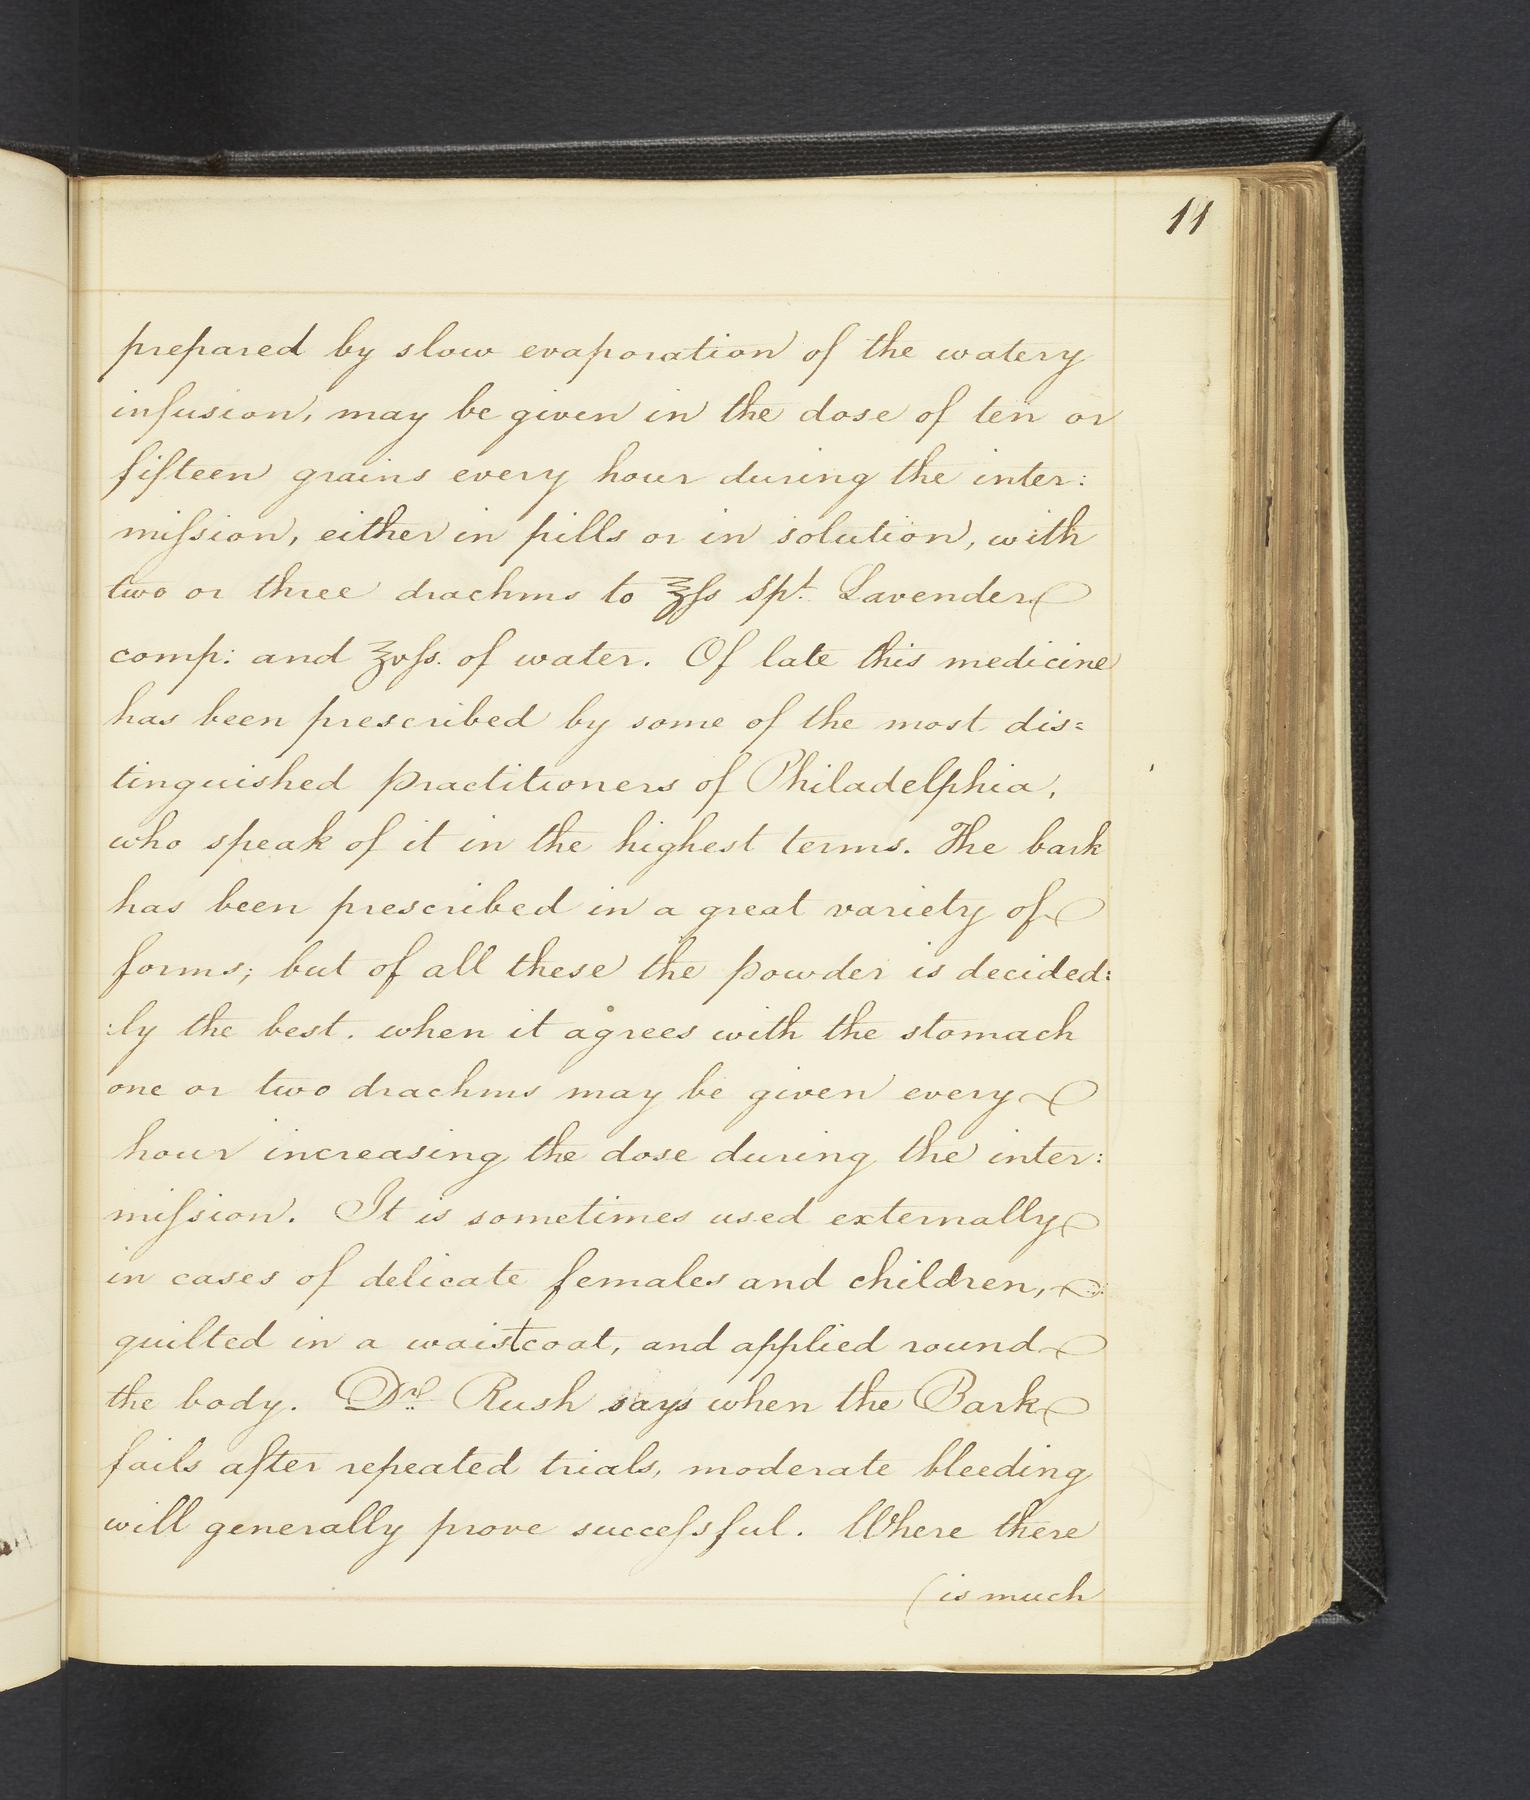 11
prepared by slow evaporation of the watery
infusion, may be given in the dose of ten or
fifteen grains every hour during the inter:
miſsion, either in pills or in solution, with
two or three drachms to ℥ſs Spt. Lavender
comp: and ℥vſs. of water. Of late this medicine
has been prescribed by some of the most dis=
tinguished practitioners of Philadelphia,
who speak of it in the highest terms. The bark
has been prescribed in a great variety of
forms; but of all these the powder is decided:
:ly the best. when it agrees with the stomach
one or two drachms may be given every
hour increasing the dose during the inter:
miſsion. It is sometimes used externally
in cases of delicate females and children,
quilted in a waistcoat, and applied round
the body. Dr. Rush says when the Bark
fails after repeated trials, moderate bleeding
will generally prove succeſsful. Where there
(is much